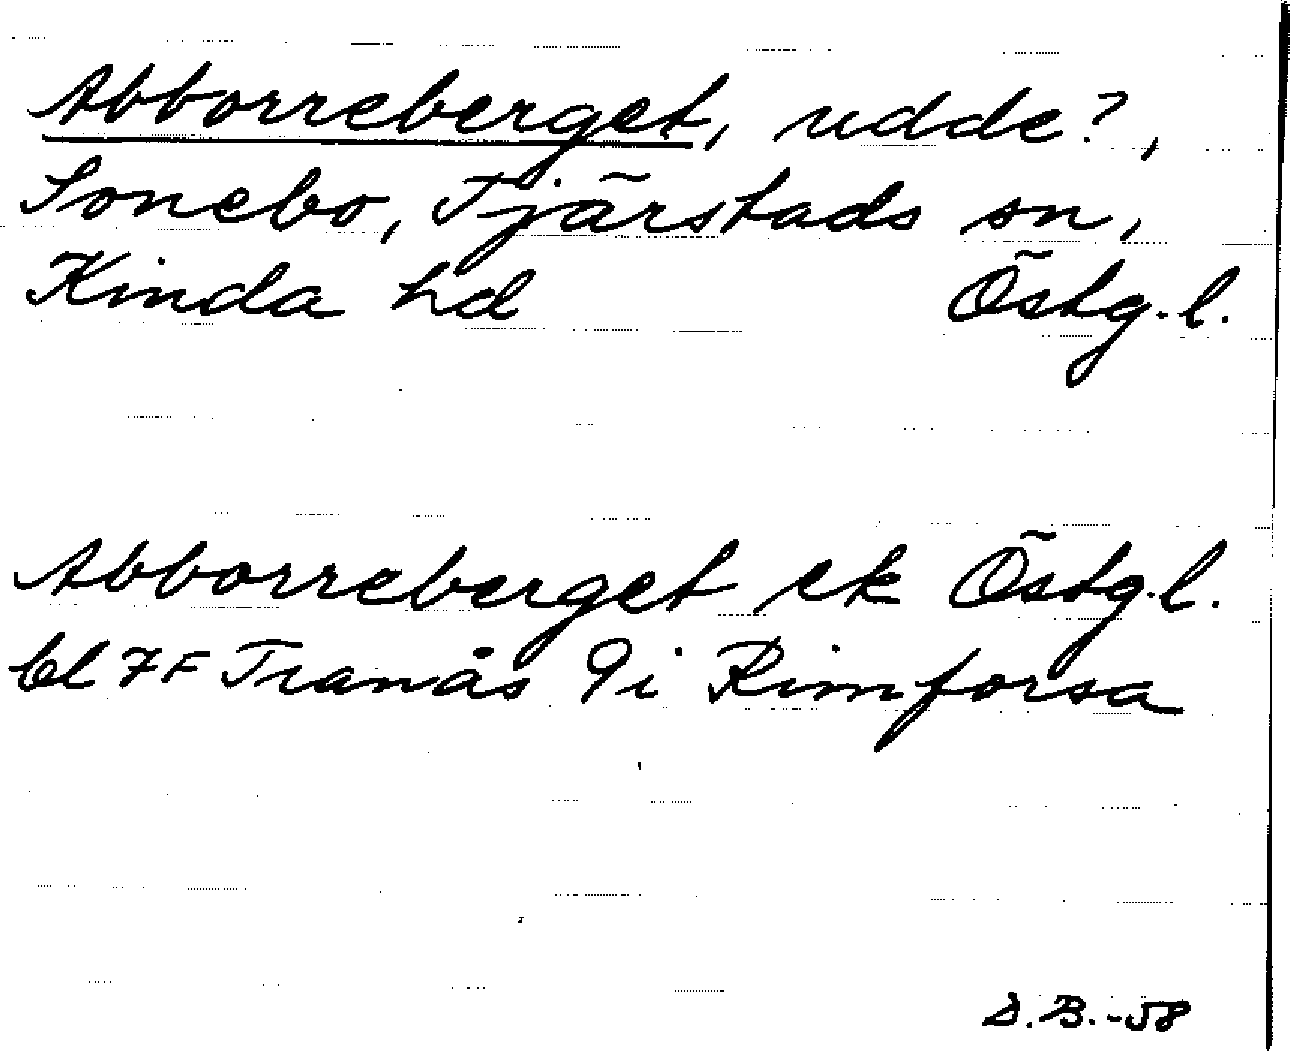 Abborreberget, udde?,
Sonebo, Tjärstads sn,
Kinda hd Östg.l.
Abborreberget ek Östg.l.
bl 7F Tranås 9i Rimforsa
D.B.-58